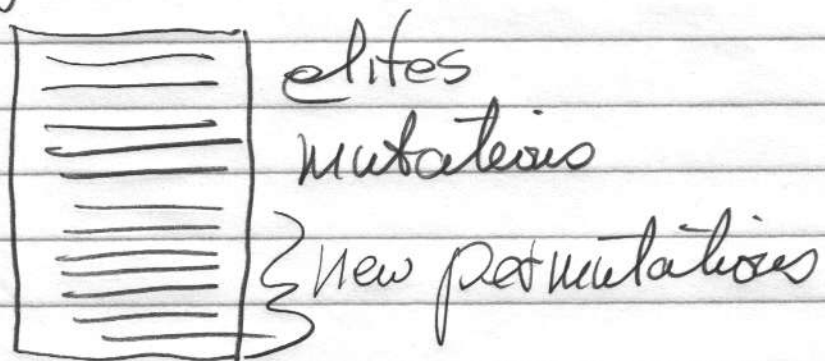 elites
mutations
new permutations